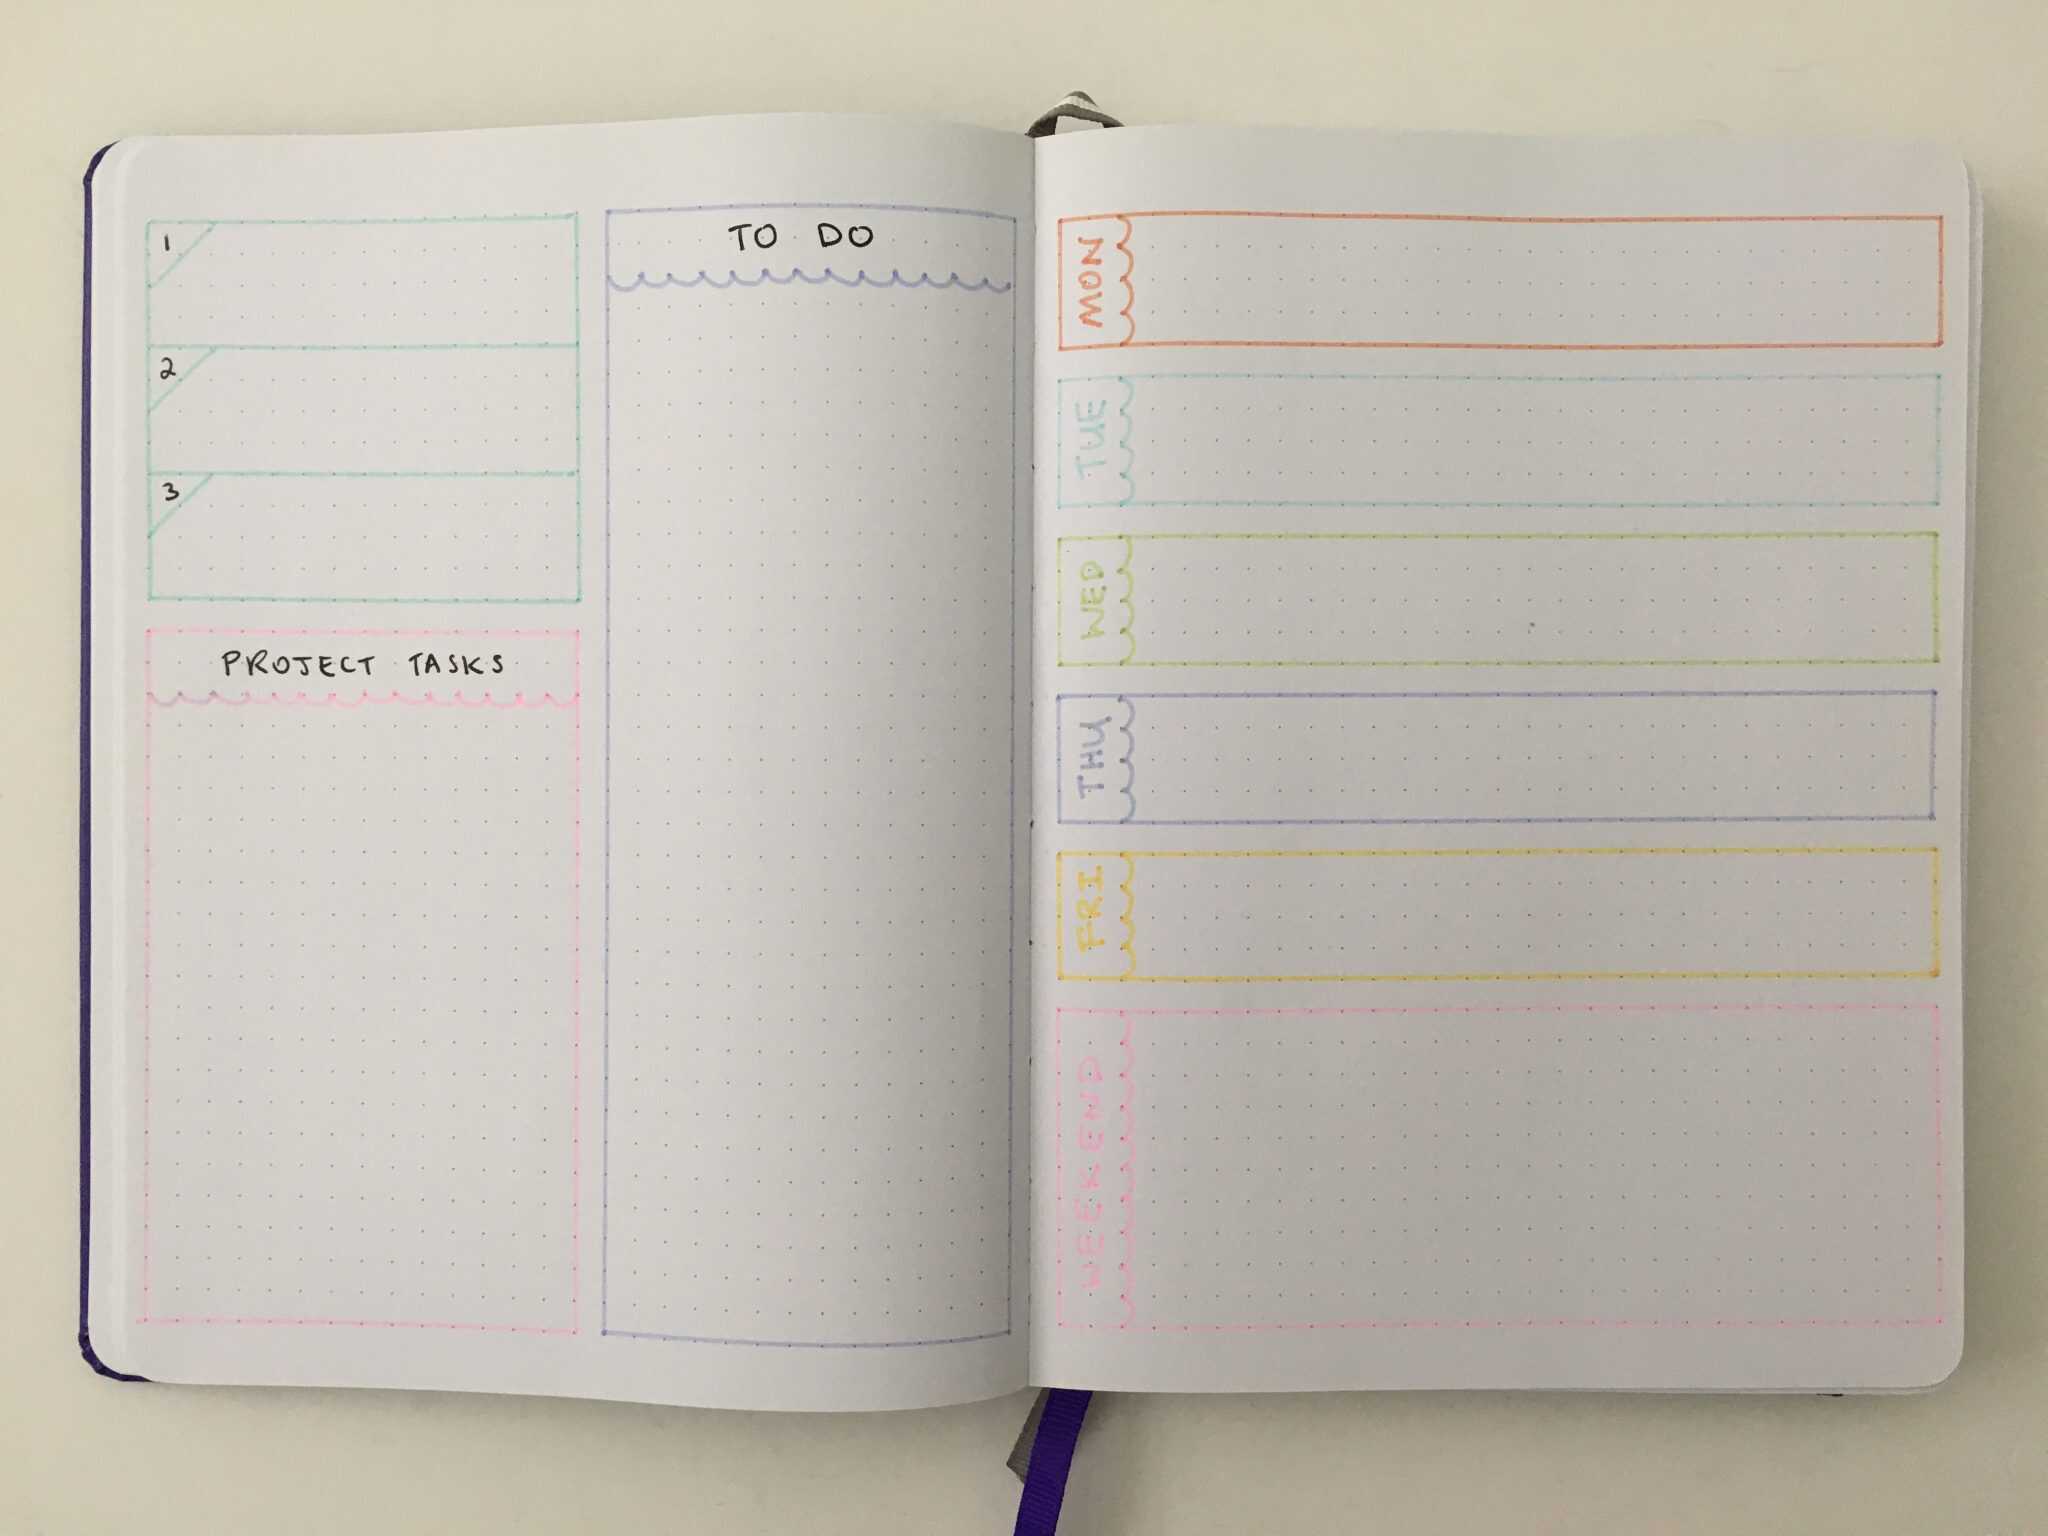 1
2
3
PROJECT TASKS
TO DO
MON
TUE
WED
THU
FRI
WEEKEND